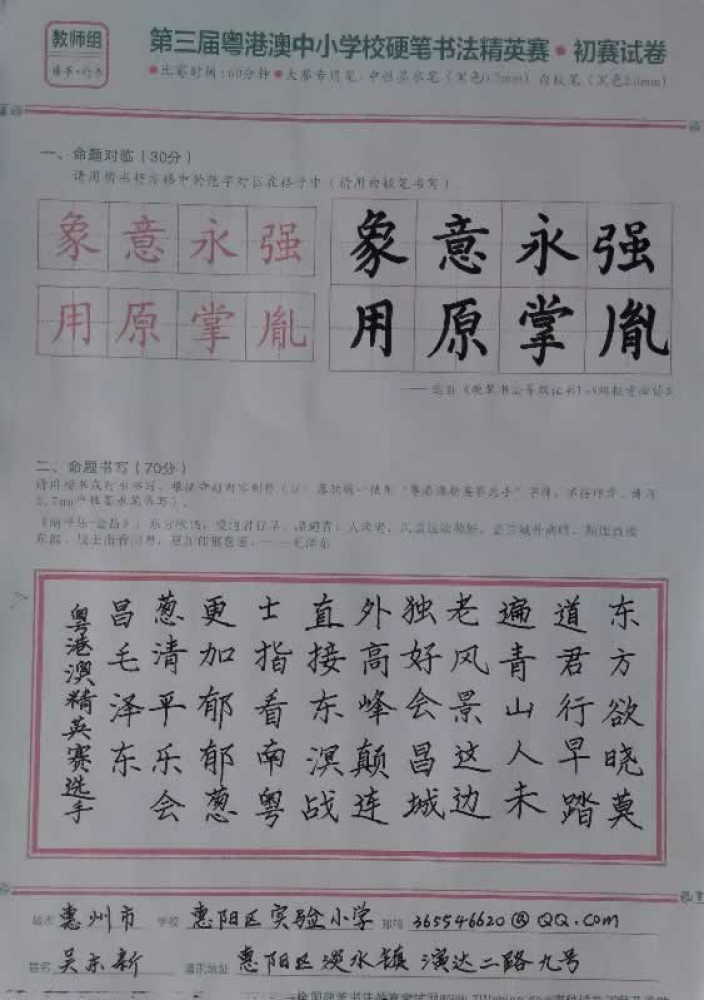 教师组
楷书·行书
第三届粤港澳中小学校硬笔书法精英赛·初赛试卷
●比赛时间:60分钟●大赛专用笔:中性墨水笔(黑色0.7mm) 白板笔(黑色2.0mm)
一、命题对临(30分)
请用楷书将方格中的范字对临在格子中(请用白板笔书写)
象意永强
用原掌胤
象意永强
用原掌胤
二、命题书写(70分)
东方欲晓莫
道君行早踏
遍青山人未
老风景这边
独好会昌城
外高峰颠连
直接东溟战
士指看南粤
更加郁郁葱
葱清平乐会
昌毛泽东
粤港澳精英赛选手
惠州市 学校 惠阳区实验小学 邮箱 365546620@QQ.com
姓名 吴东新 通讯地址 惠阳区淡水镇演达二路九号